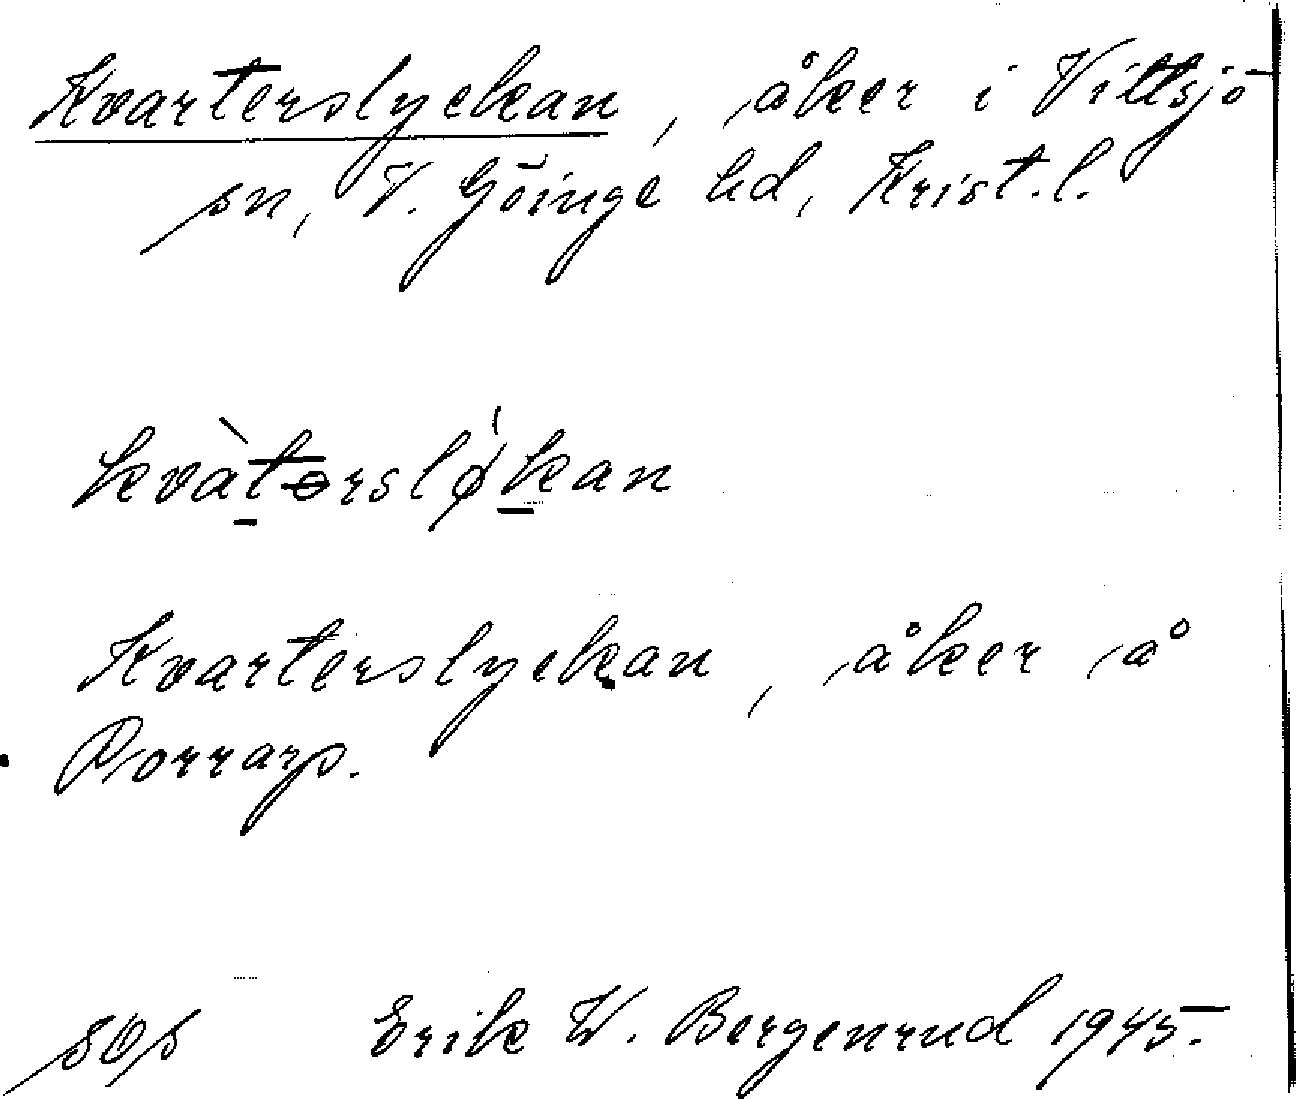 Kvarterslyckan, åker i Vittsjö
sn, V. Göinge hd, Krist. l.
kvàtərsløkan
Kvarterslyckan, åker å
Porrarp.
Erik W. Bergenrud 1945.